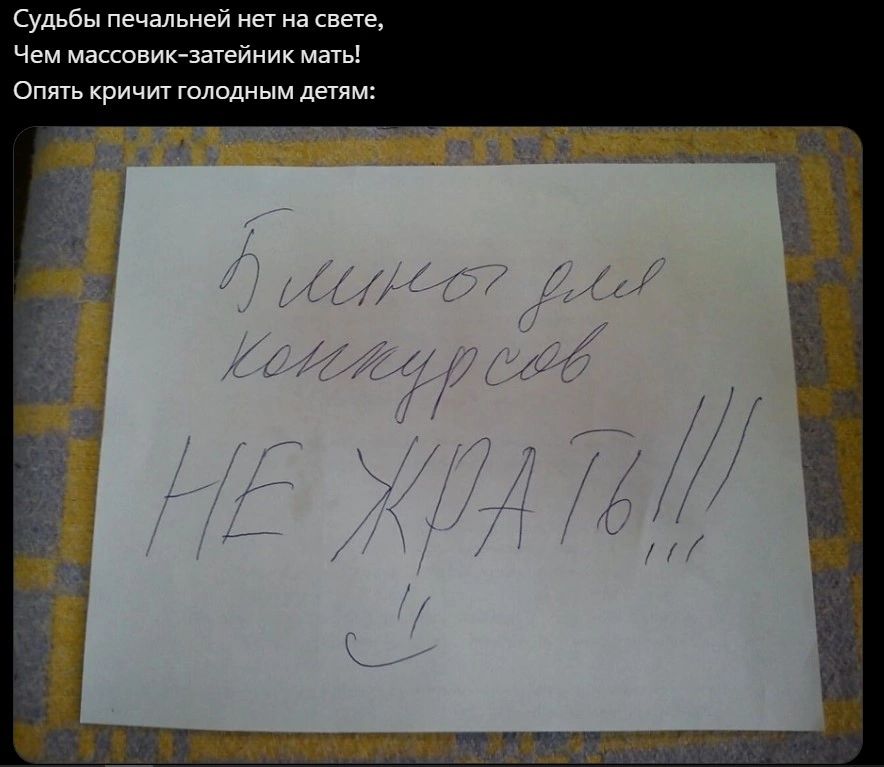 Судьбы печальней нет на свете,
Чем массовик-затейник мать!
Опять кричит голодным детям:
Блины для
конкурсов
НЕ ЖРАТЬ!!!